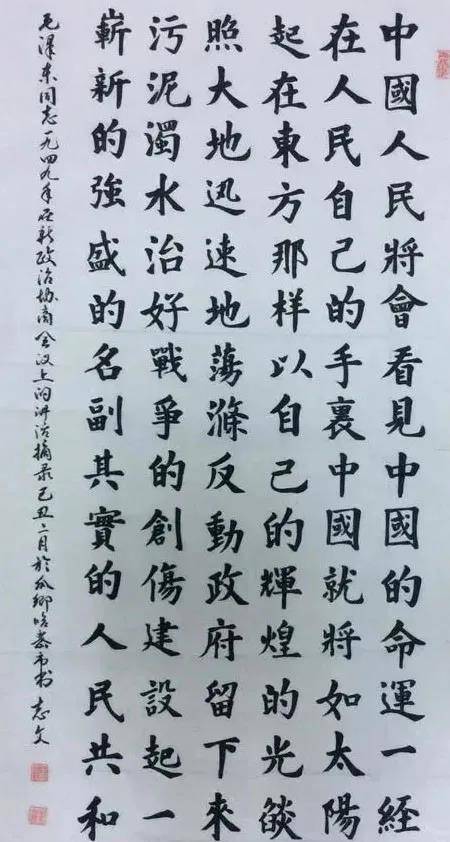 中國人民將會看見中國的命運一經
在人民自己的手裏中國就將如太陽
起在東方那样以自己的輝煌的光燄
照大地迅速地蕩滌反動政府留下來
污泥濁水治好戰爭的創傷建設起一
嶄新的強盛的名副其實的人民共和
毛澤东同志一九四九年在新政治协商会议上的讲话摘录己丑二月於瓜鄉哈密市书 志文